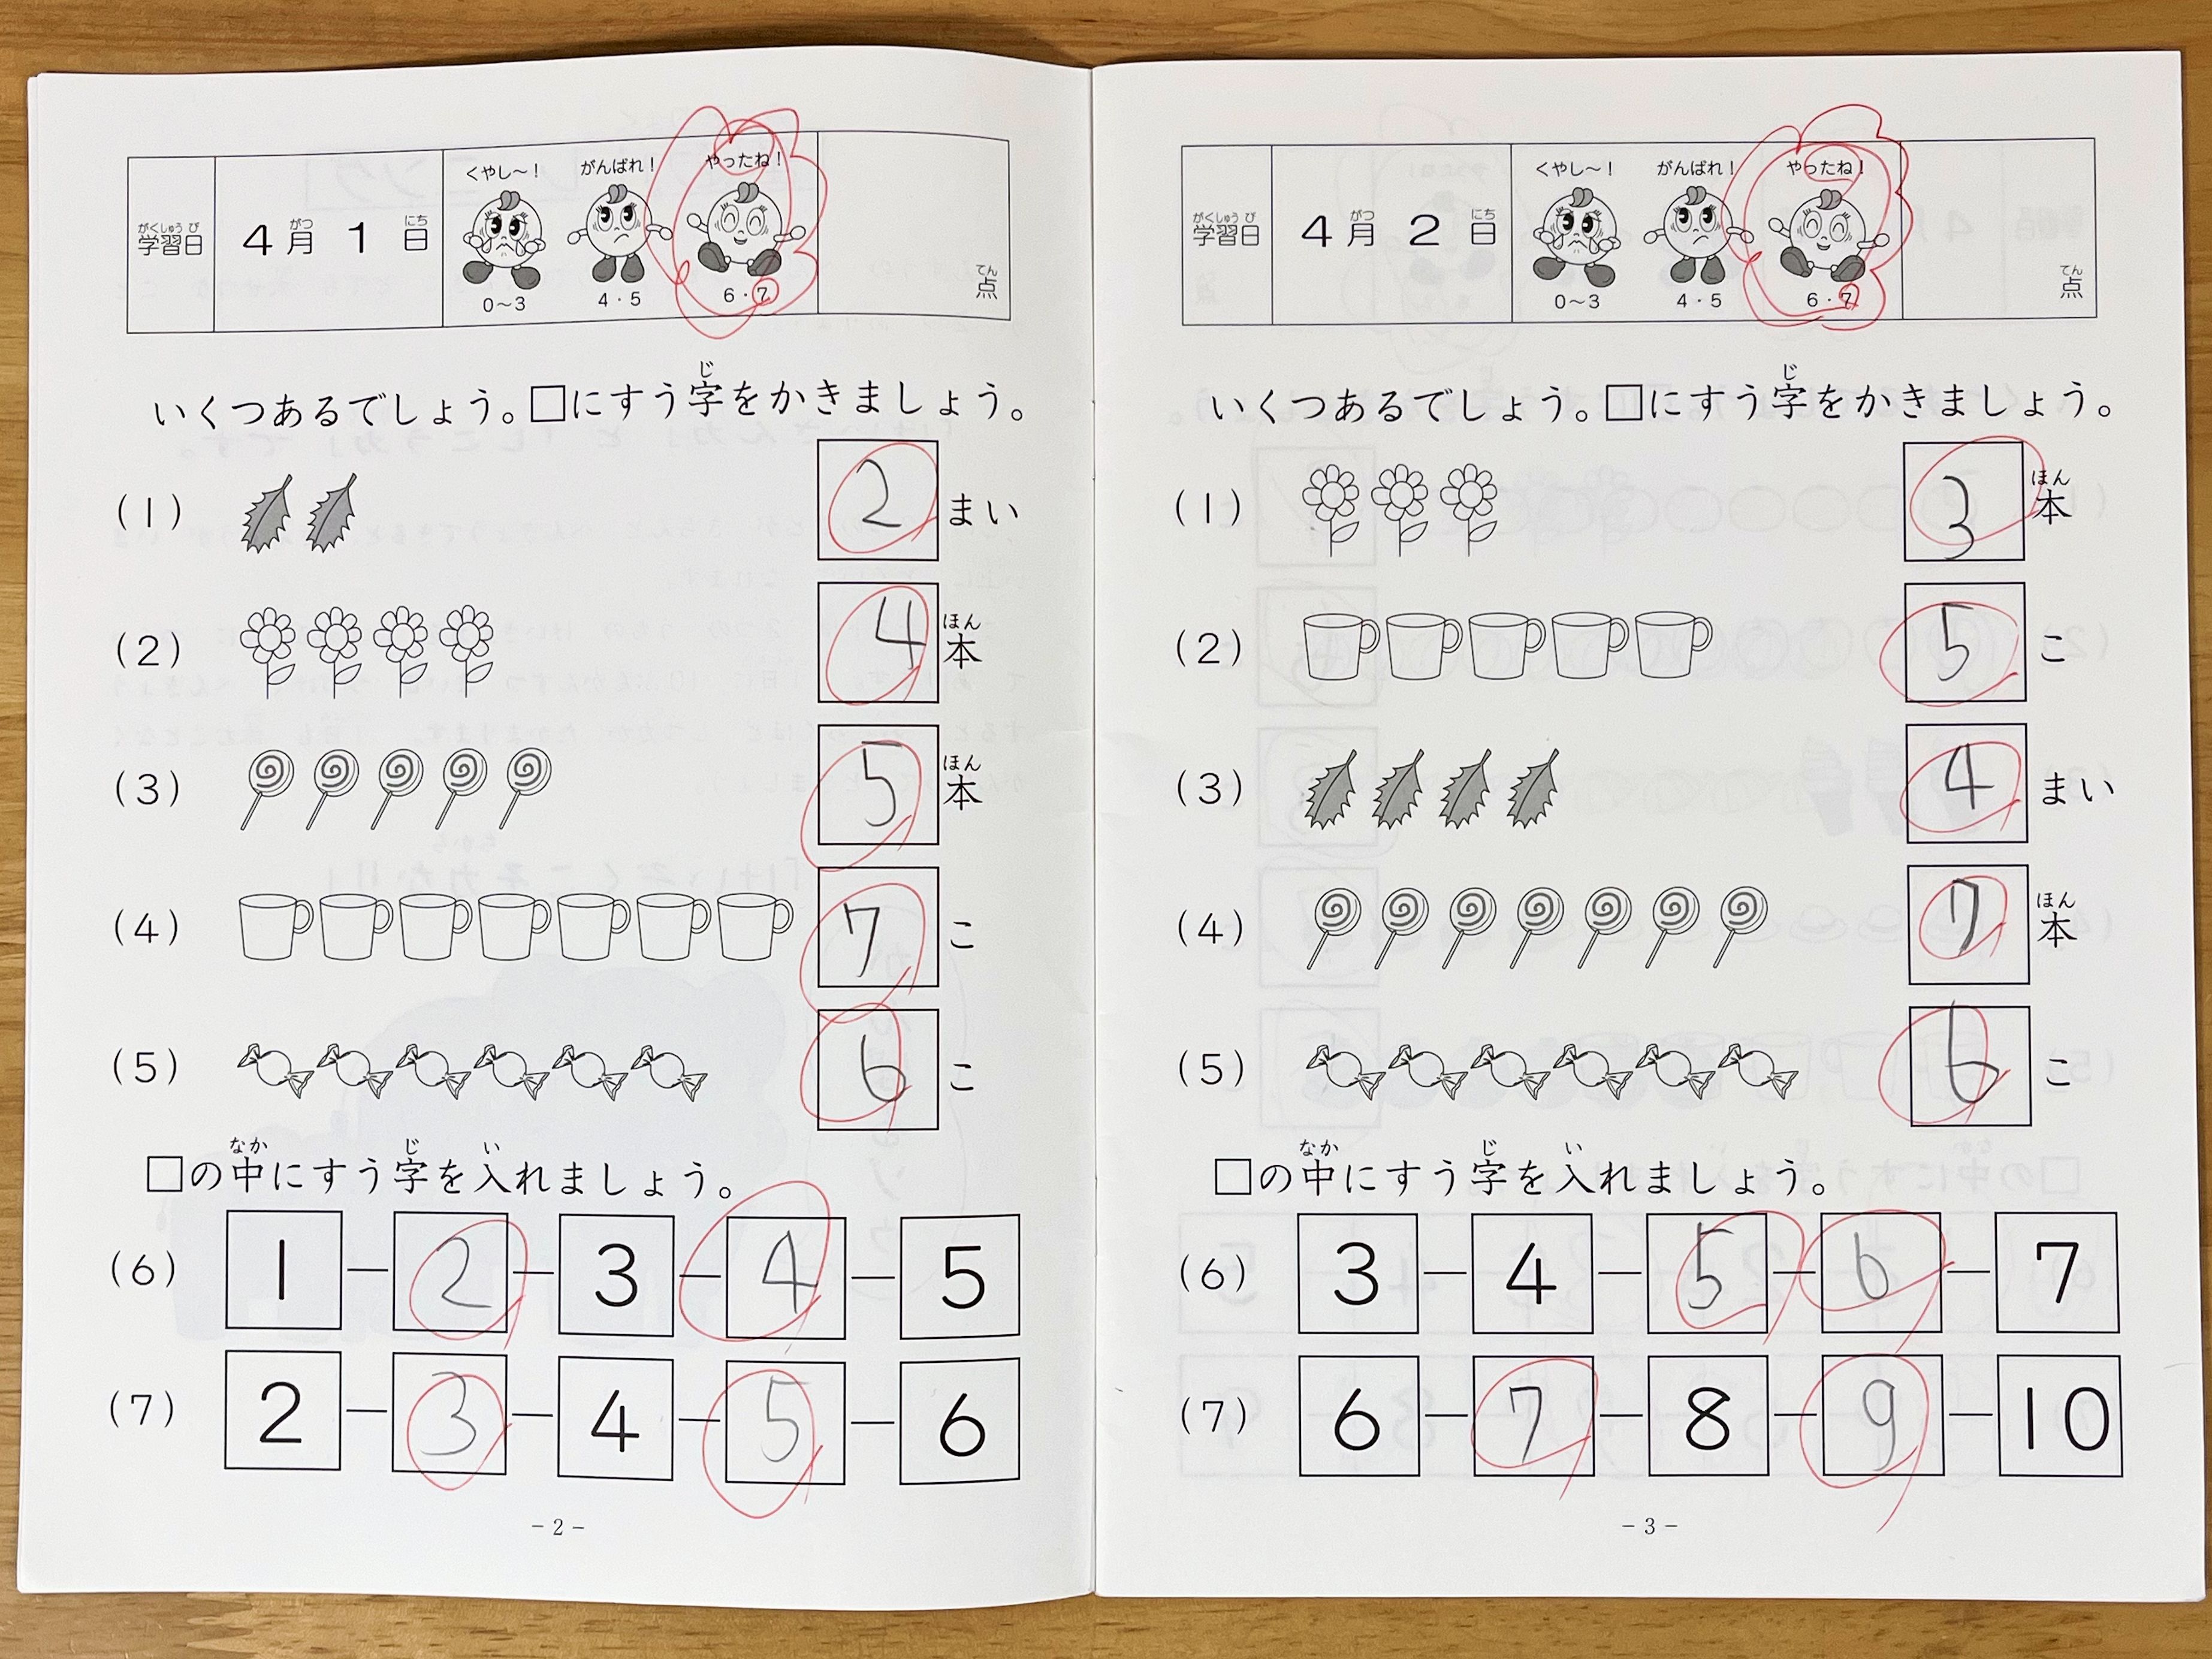 学習日 がくしゅうび 4月 がつ 1日 にち くやし〜! がんばれ! やったね!
0〜3 4・5 6・7 点 てん
いくつあるでしょう。□にすう字をかきましょう。 じ
(1) 2 まい
(2) 4 本 ほん
(3) 5 本 ほん
(4) 7 こ
(5) 6 こ
□の中にすう字を入れましょう。 なか じ い
(6) 1 2 3 4 5
(7) 2 3 4 5 6
-2-
学習日 がくしゅうび 4月 がつ 2日 にち くやし〜! がんばれ! やったね!
0〜3 4・5 6・7 点 てん
いくつあるでしょう。□にすう字をかきましょう。 じ
(1) 3 本 ほん
(2) 5 こ
(3) 4 まい
(4) 7 本 ほん
(5) 6 こ
□の中にすう字を入れましょう。 なか じ い
(6) 3 4 5 6 7
(7) 6 7 8 9 10
-3-